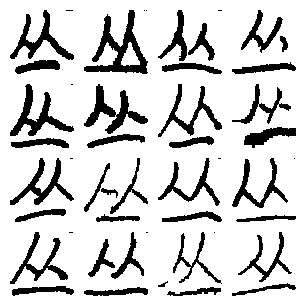 丛丛丛丛
丛丛丛丛
丛丛丛丛
丛丛丛丛